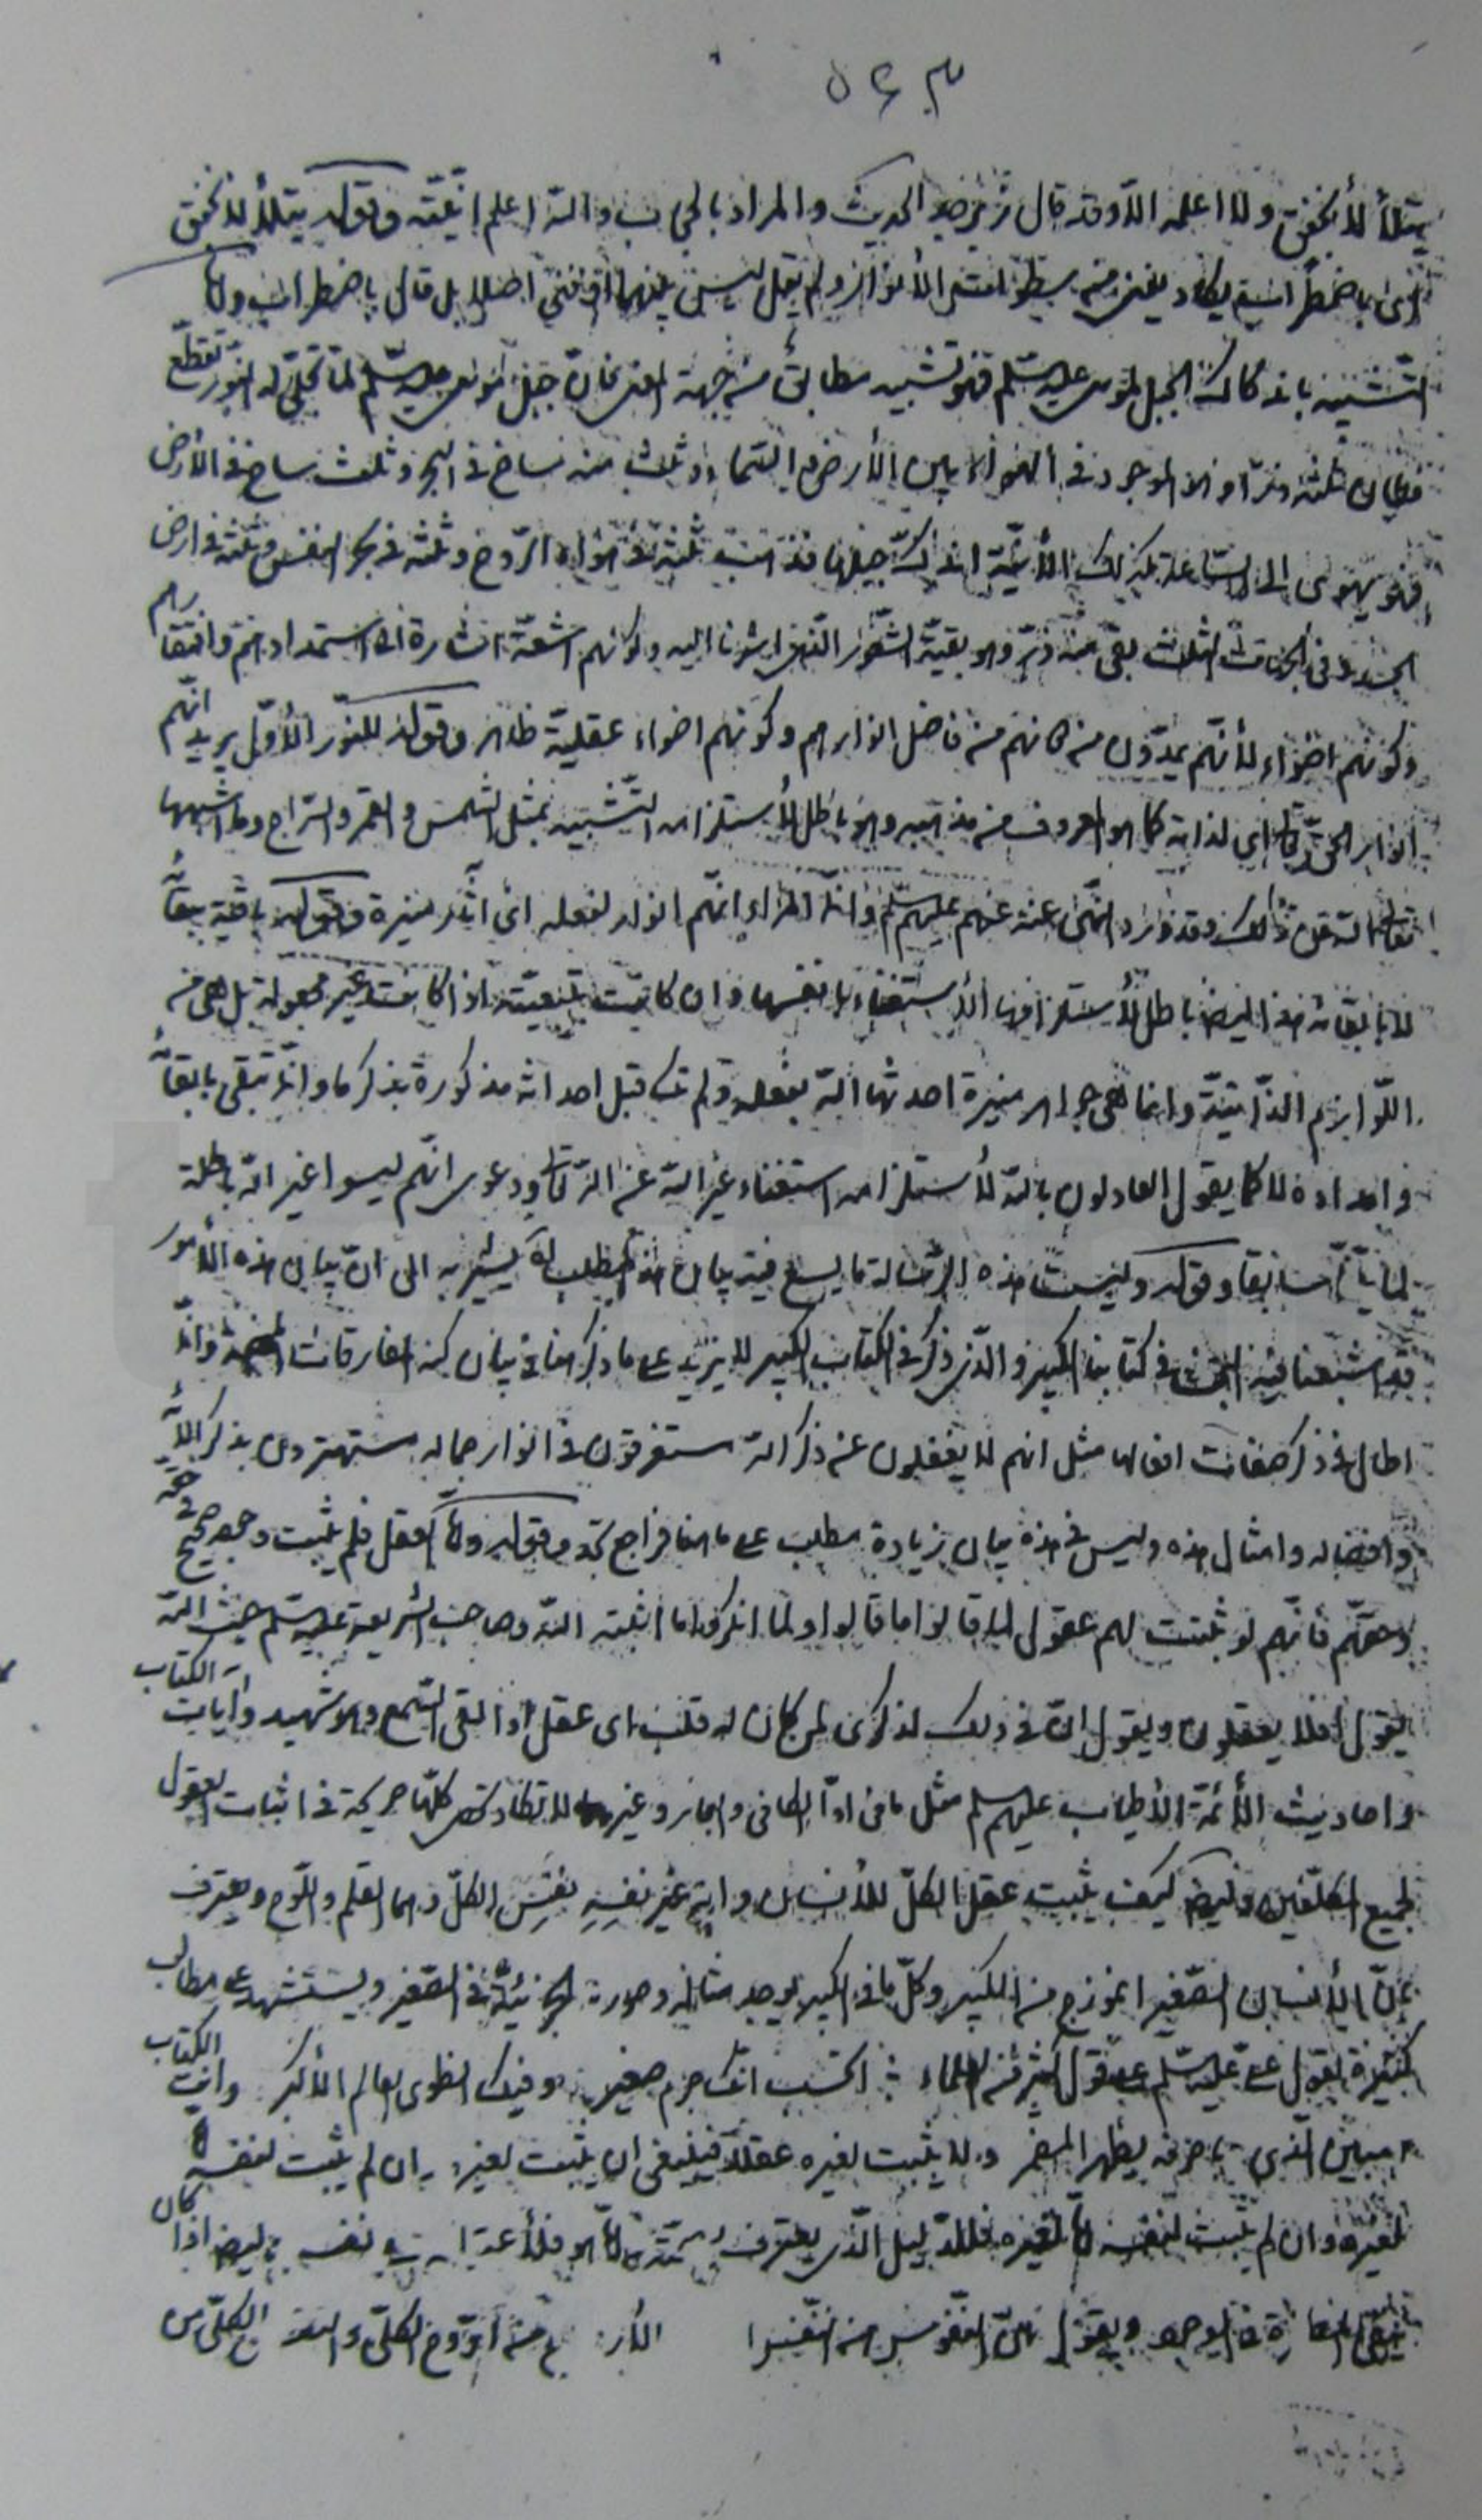 ٥٤٣
يتلألأ بخفق ولا اعلمه الا وقد قال زبرجد الحديث والمراد بالحجاب والله اعلم انيته وقوله يتلألأ بخفق
اى باضطراب يكاد يفنى من سطوات الانوار ولم يقل ليس بفنى اصلا بل قال باضطراب ولا
التشبيه بانه كاندكاك الجبل لموسى عليه السلم فهو تشبيه مطابق من جهة المعنى فان جبل موسى عليه السلم لما تجلى له النور تقطع
فكان ثلثه ذرا وهو الموجود فى الهواء بين الأرض والسماء وثلث منه ساخ فى البحر وثلث ساخ فى الأرض
فهو يهوى الى الساعة كذلك الأنية اندك جبلها فذهبت ثلثه فى هواء الروح وثلثه فى بحر النفس وثلثه فى ارض
الجسد وفى الجهات الثلث بقى منه ذر وهو بقية الشعور الذى اشرنا اليه وكونهم اشعة اشارة الى استمدادهم وافتقارهم
وكونهم اضواء لأنهم يمدون من دونهم من فاضل انوارهم وكونهم اضواء عقلية ظاهر وقوله للنور الأول يريد انهم
انوار الحق تعالى اى لذاته كما هو المعروف من مذهبه وهو باطل لاستلزامه التشبيه بمثل الشمس والقمر والسراج وما اشبهها
تعالى الله عن ذلك وقد ورد النهى عنه عنهم عليهم السلم وانما المراد انهم انوار لفعله اى آثار منيرة وقوله باقية ببقائه
لا بابقائه هذا ايضا باطل لاستلزامها الاستغناء بانفسها وان كانت بتبعيته اذا كانت غير مجعولة بل هى من
اللوازم الذاتية وانما هى جواهر منيرة احدثها الله بفعله ولم تك قبل احداثه مذكورة بذكر ما وانما تبقى بابقائه
وامداده لا كما يقول العادلون بالله لاستلزامه استغناء غير الله عن الله تعالى ودعوى انهم ليسوا غير الله باطلة
لما بينا سابقا وقوله وليست هذه الرسالة مما يسع فيه بيان هذا المطلب يشير به الى ان بيان هذه الأمور
قد اشبعنا فيه البحث فى كتابنا الكبير والذى ذكر فى الكتاب الكبير لا يزيد على ما ذكر هنا فى بيان كنه المفارقات المحضة وانما
اطال فى ذكر صفات افعالها مثل انهم لا يغفلون عن ذكر الله مستغرقون فى انوار جماله مستهترون بذكر آلائه
وافضاله وامثال هذه وليس فى هذه بيان زيادة مطلب على ما هنا فراجع تجد وقوله واما العقل فلم يثبت وجوده صحيح فى حقه
وحقهم فانهم لو ثبتت لهم عقول لما قالوا ما قالوا ولما انكروا ما اثبته الله وصاحب الشريعة عليه السلم حيث الله
يقول افلا يعقلون ويقول ان فى ذلك لذكرى لمن كان له قلب اى عقل او القى السمع وهو شهيد وآيات الكتاب
واحاديث الأئمة الأطياب عليهم السلم مثل ما فى اول الكافى والبحار وغيرهما لا تكاد تحصى كلها صريحة فى اثبات العقول
لجميع المكلفين وايضا كيف يثبت عقل الكل للأنسان وانه غير نفسه نفس الكل وهما القلم واللوح ويعترف
بان الأنسان الصغير انموذج من الكبير وكل ما فى الكبير يوجد مثاله وصورته الجزئية فى الصغير ويستشهد على مطالب
كثيرة بقول على عليه السلم على قول كثير من العلماء اتحسب انك جرم صغير وفيك انطوى العالم الأكبر وانت الكتاب
المبين الذى باحرفه يظهر المضمر ولا يثبت لغيره عقلا فينبغى ان يثبت لغيره ان لم يثبت لنفسه
لغيره وان لم يثبت لنفسه لغيره فللدليل الذى يعترف نفسه وايضا اذا كان
المغايرة فى الوجود ويقول بان النفوس من الروح الكلى والنفس الكلى من